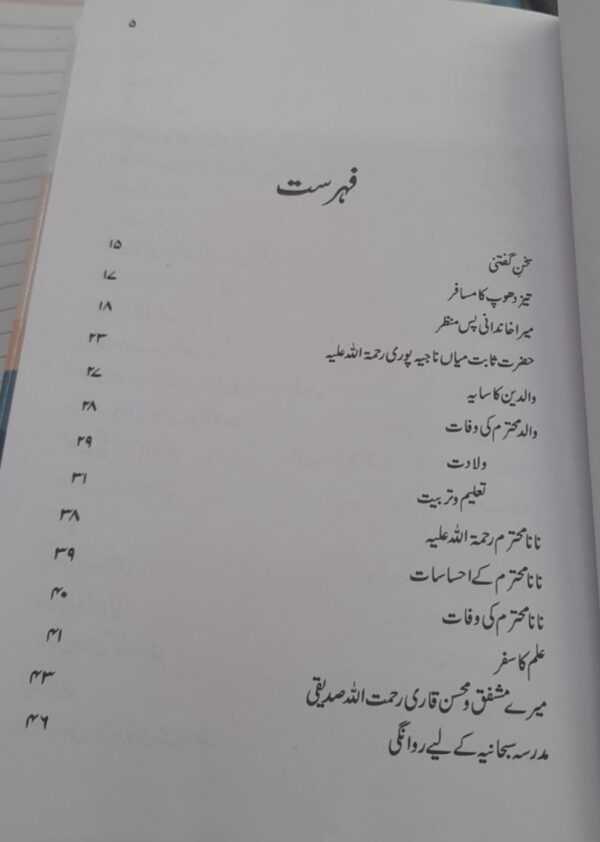 ۵
فہرست
سخن گفتنی ۱۵
تیز دھوپ کا مسافر ۱۷
میرا خاندانی پس منظر ۱۸
حضرت ثابت میاں ناجیہ پوری رحمۃ اللہ علیہ ۲۳
والدین کا سایہ ۲۷
والد محترم کی وفات ۲۸
ولادت ۲۹
تعلیم و تربیت ۳۱
نانا محترم رحمۃ اللہ علیہ ۳۸
نانا محترم کے احساسات ۳۹
نانا محترم کی وفات ۴۰
علم کا سفر ۴۱
میرے مشفق و محسن قاری رحمت اللہ صدیقی ۴۳
مدرسہ سبحانیہ کے لیے روانگی ۴۶